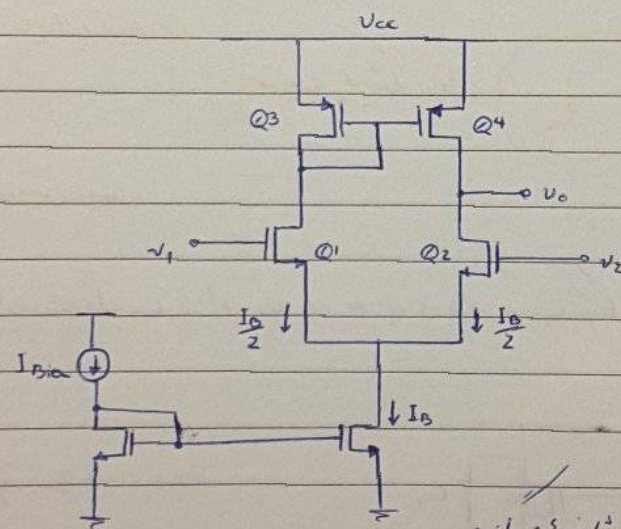 Vcc
Q3
Q4
vo
v1
Q1
Q2
v2
IB/2
IB/2
IBias
IB